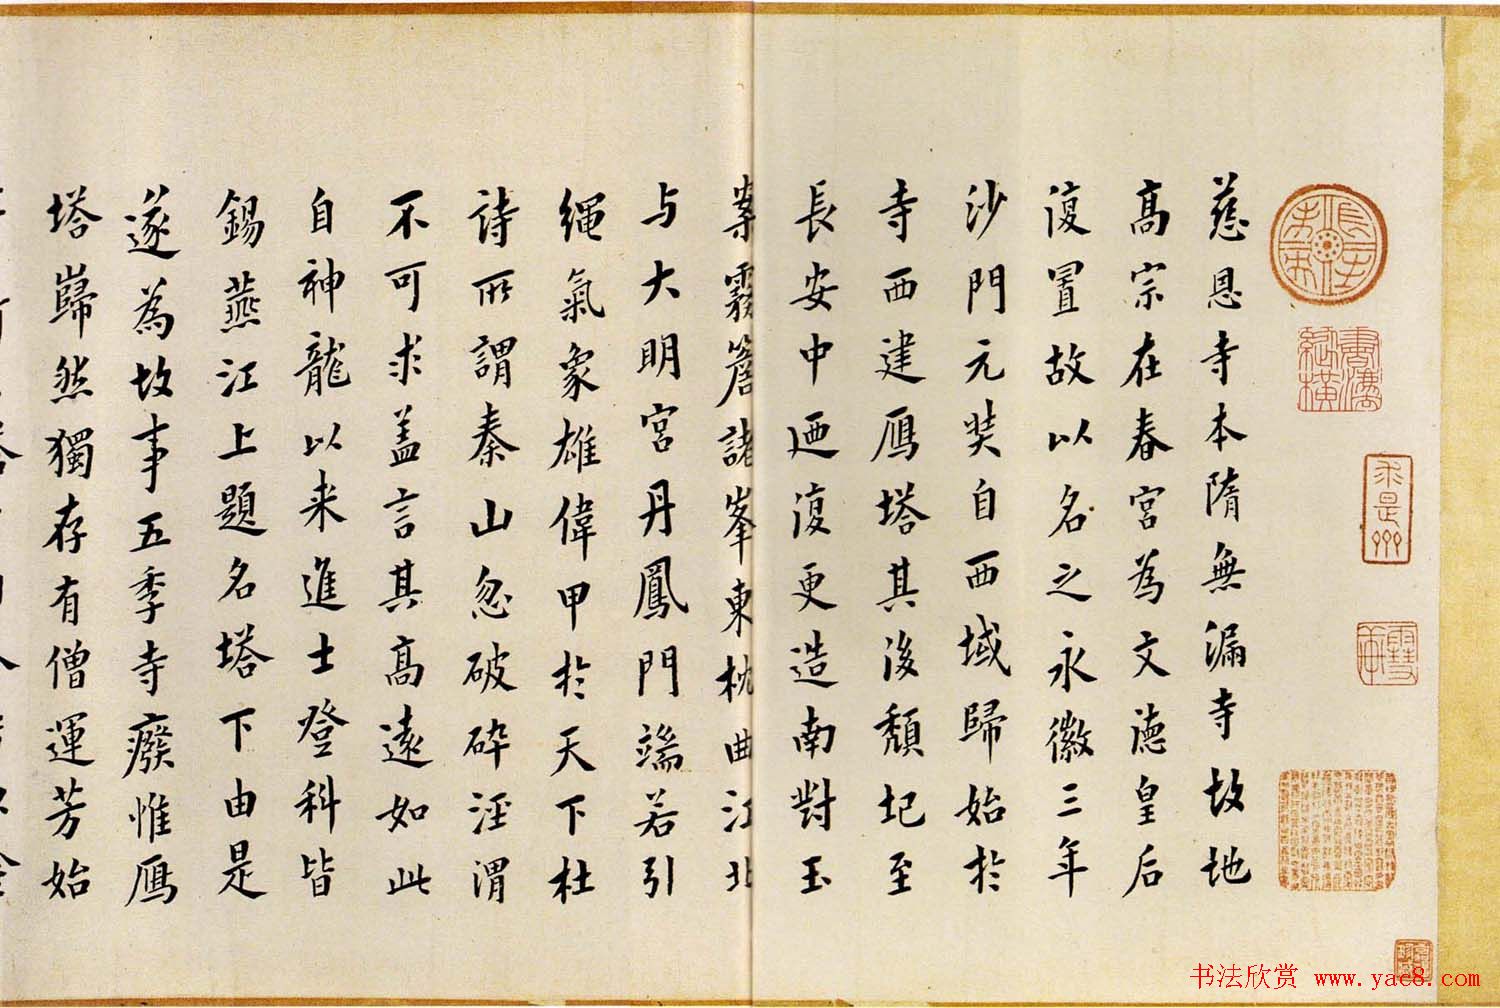 慈恩寺本隋無漏寺故地
高宗在春宮為文德皇后
復置故以名之永徽三年
沙門元奘自西域歸始於
寺西建鴈塔其後頹圮至
長安中迺復更造南對玉
案霧簷諸峯東枕曲江北
与大明宮丹鳳門端若引
繩氣象雄偉甲於天下杜
詩所謂秦山忽破碎涇渭
不可求盖言其高遠如此
自神龍以来進士登科皆
錫燕江上題名塔下由是
遂為故事五季寺癈惟鴈
塔巋然獨存有僧運芳始
书法欣赏 www.yac8.com